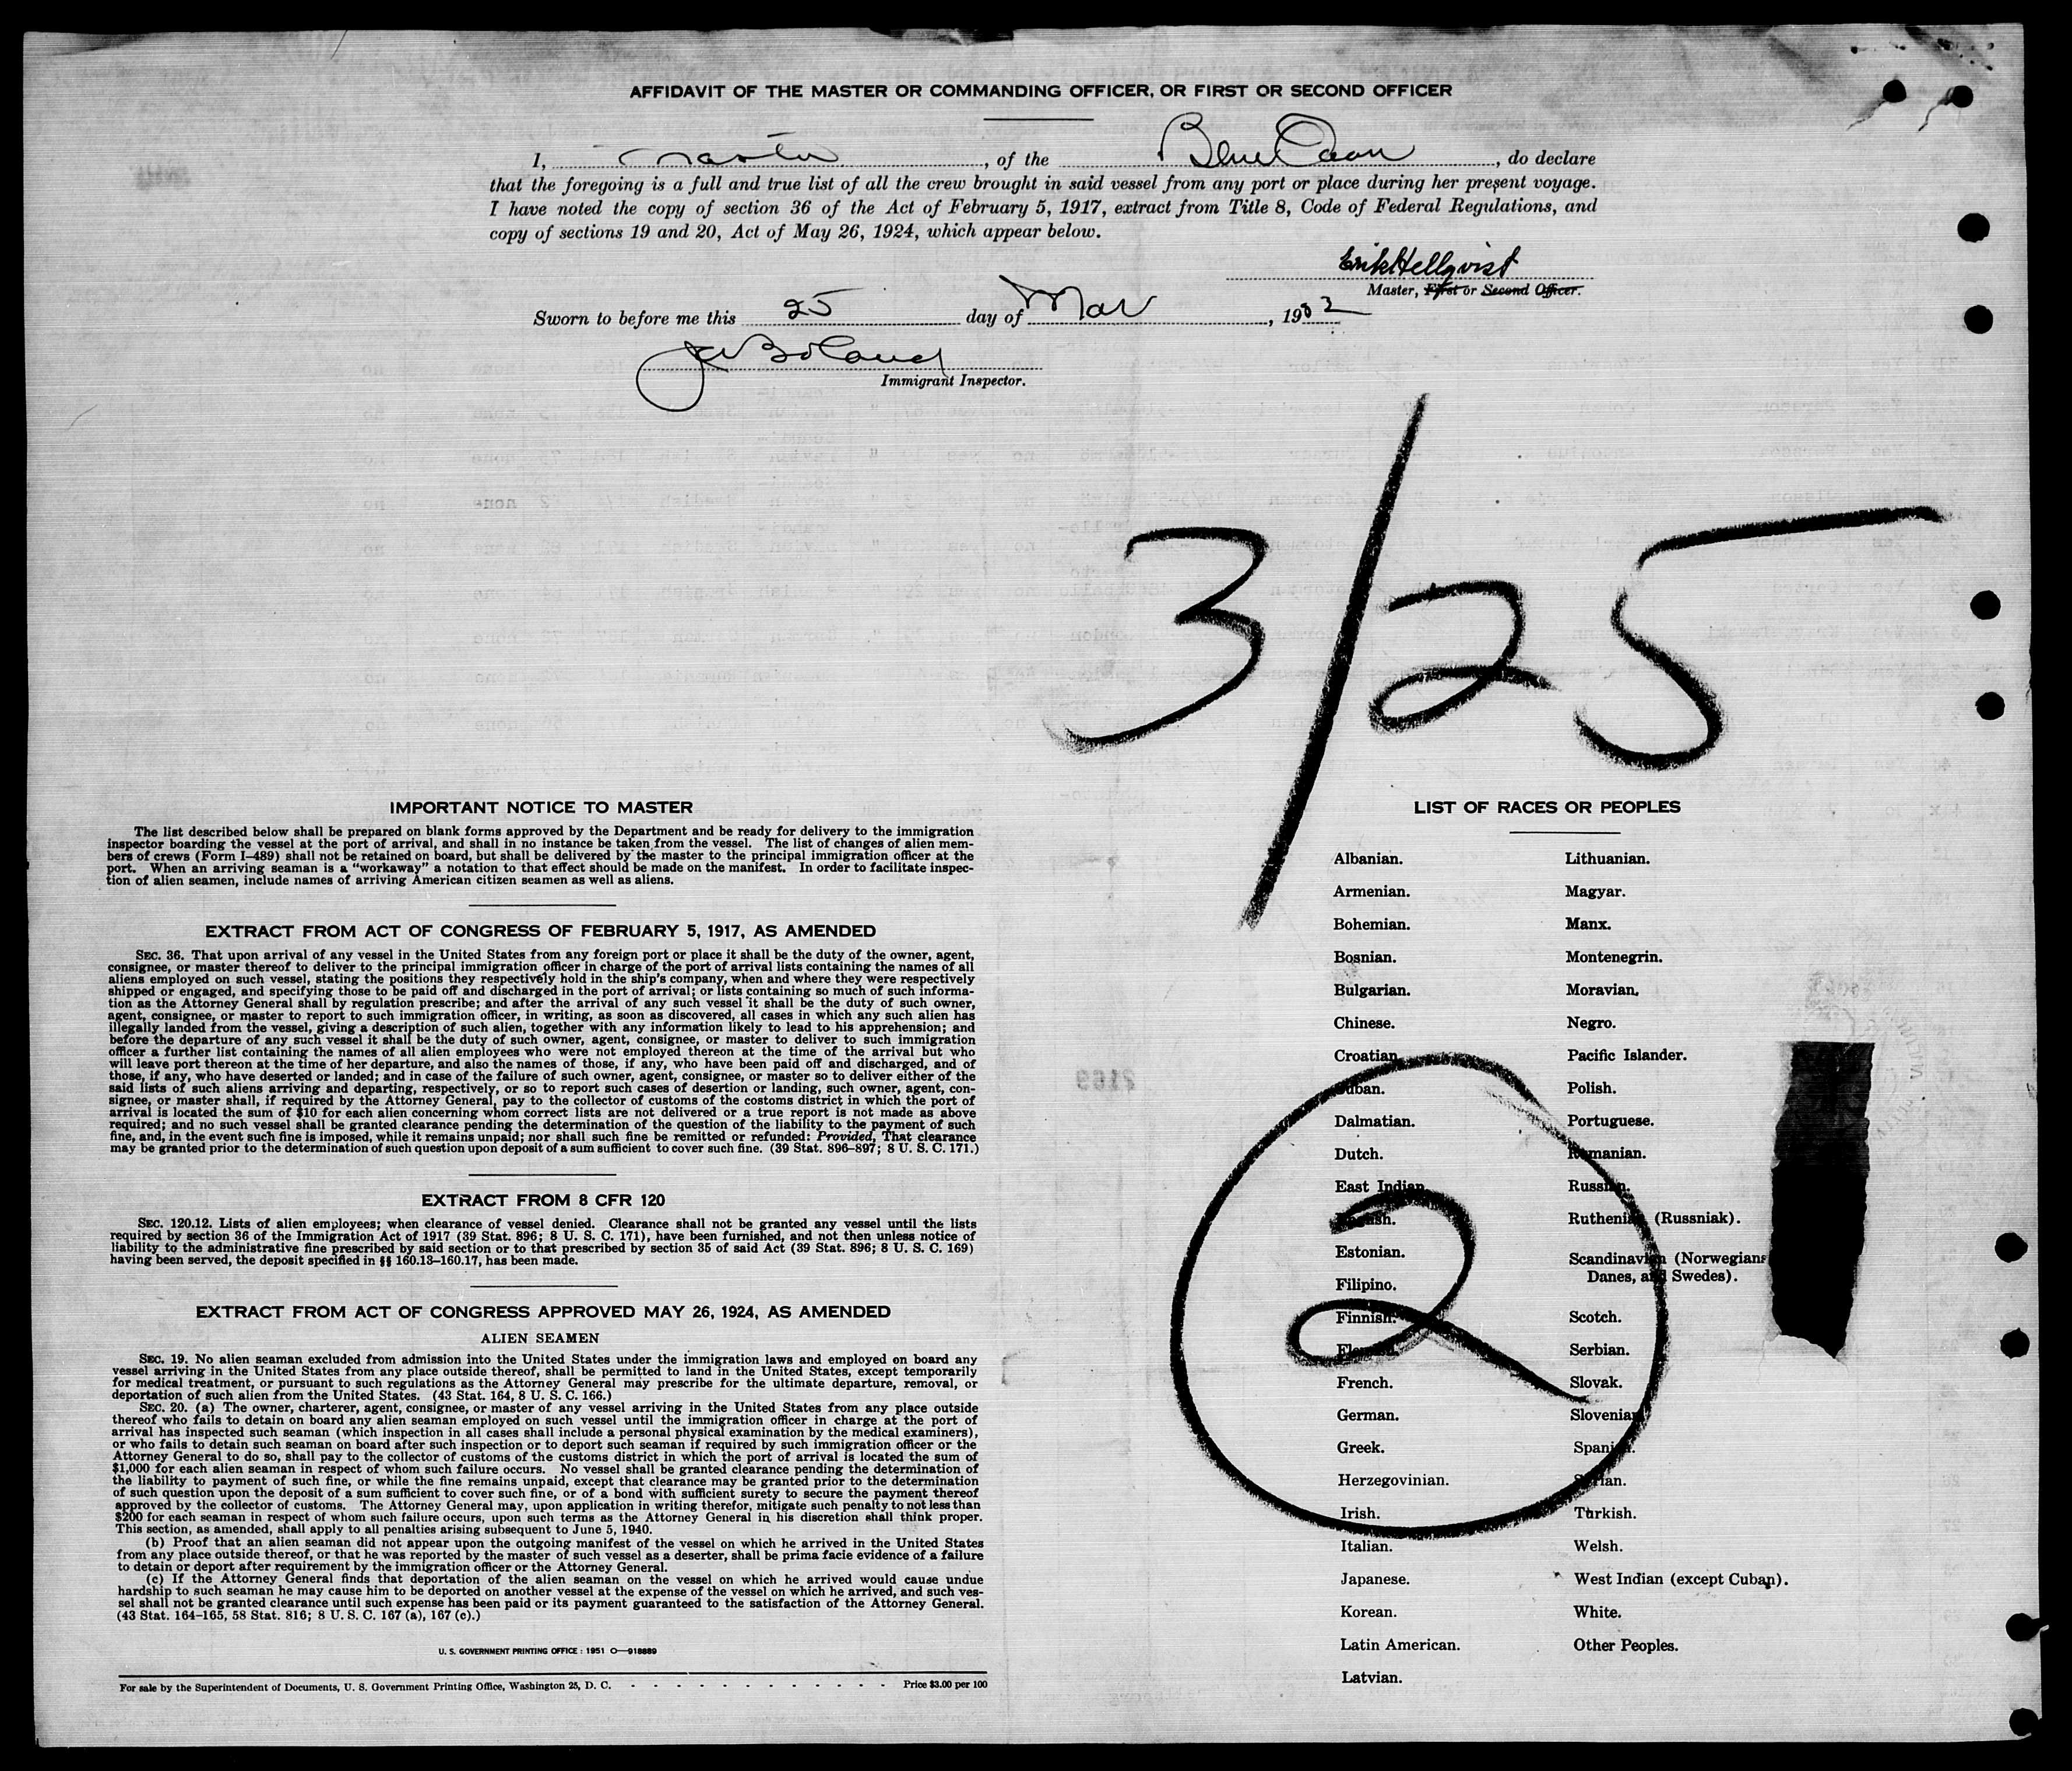 AFFIDAVIT OF THE MASTER OR COMMANDING OFFICER, OR FIRST OR SECOND OFFICER
I, master, of the , do declare
that the foregoing is a full and true list of all the crew brought in said vessel from any port or place during her present voyage.
I have noted the copy of section 36 of the Act of February 5, 1917, extract from Title 8, Code of Federal Regulations, and
copy of sections 19 and 20, Act of May 26, 1924, which appear below.
Erik Hellqvist
Master, First or Second Officer.
Sworn to before me this 25 day of Mar, 19
Boland
Immigrant Inspector.
3/25
IMPORTANT NOTICE TO MASTER
The list described below shall be prepared on blank forms approved by the Department and be ready for delivery to the immigration
inspector boarding the vessel at the port of arrival, and shall in no instance be taken from the vessel. The list of changes of alien mem-
bers of crews (Form I–489) shall not be retained on board, but shall be delivered by the master to the principal immigration officer at the
port. When an arriving seaman is a “workaway” a notation to that effect should be made on the manifest. In order to facilitate inspec-
tion of alien seamen, include names of arriving American citizen seamen as well as aliens.
EXTRACT FROM ACT OF CONGRESS OF FEBRUARY 5, 1917, AS AMENDED
SEC. 36. That upon arrival of any vessel in the United States from any foreign port or place it shall be the duty of the owner, agent,
consignee, or master thereof to deliver to the principal immigration officer in charge of the port of arrival lists containing the names of all
aliens employed on such vessel, stating the positions they respectively hold in the ship's company, when and where they were respectively
shipped or engaged, and specifying those to be paid off and discharged in the port of arrival; or lists containing so much of such informa-
tion as the Attorney General shall by regulation prescribe; and after the arrival of any such vessel it shall be the duty of such owner,
agent, consignee, or master to report to such immigration officer, in writing, as soon as discovered, all cases in which any such alien has
illegally landed from the vessel, giving a description of such alien, together with any information likely to lead to his apprehension; and
before the departure of any such vessel it shall be the duty of such owner, agent, consignee, or master to deliver to such immigration
officer a further list containing the names of all alien employees who were not employed thereon at the time of the arrival but who
will leave port thereon at the time of her departure, and also the names of those, if any, who have been paid off and discharged, and of
those, if any, who have deserted or landed; and in case of the failure of such owner, agent, consignee, or master so to deliver either of the
said lists of such aliens arriving and departing, respectively, or so to report such cases of desertion or landing, such owner, agent, con-
signee, or master shall, if required by the Attorney General, pay to the collector of customs of the costoms district in which the port of
arrival is located the sum of $10 for each alien concerning whom correct lists are not delivered or a true report is not made as above
required; and no such vessel shall be granted clearance pending the determination of the question of the liability to the payment of such
fine, and, in the event such fine is imposed, while it remains unpaid; nor shall such fine be remitted or refunded: Provided, That clearance
may be granted prior to the determination of such question upon deposit of a sum sufficient to cover such fine. (39 Stat. 896–897; 8 U. S. C. 171.)
EXTRACT FROM 8 CFR 120
SEC. 120.12. Lists of alien employees; when clearance of vessel denied. Clearance shall not be granted any vessel until the lists
required by section 36 of the Immigration Act of 1917 (39 Stat. 896; 8 U. S. C. 171), have been furnished, and not then unless notice of
liability to the administrative fine prescribed by said section or to that prescribed by section 35 of said Act (39 Stat. 896; 8 U. S. C. 169)
having been served, the deposit specified in §§ 160.13–160.17, has been made.
EXTRACT FROM ACT OF CONGRESS APPROVED MAY 26, 1924, AS AMENDED
ALIEN SEAMEN
SEC. 19. No alien seaman excluded from admission into the United States under the immigration laws and employed on board any
vessel arriving in the United States from any place outside thereof, shall be permitted to land in the United States, except temporarily
for medical treatment, or pursuant to such regulations as the Attorney General may prescribe for the ultimate departure, removal, or
deportation of such alien from the United States. (43 Stat. 164, 8 U. S. C. 166.)
SEC. 20. (a) The owner, charterer, agent, consignee, or master of any vessel arriving in the United States from any place outside
thereof who fails to detain on board any alien seaman employed on such vessel until the immigration officer in charge at the port of
arrival has inspected such seaman (which inspection in all cases shall include a personal physical examination by the medical examiners),
or who fails to detain such seaman on board after such inspection or to deport such seaman if required by such immigration officer or the
Attorney General to do so, shall pay to the collector of customs of the customs district in which the port of arrival is located the sum of
$1,000 for each alien seaman in respect of whom such failure occurs. No vessel shall be granted clearance pending the determination of
the liability to payment of such fine, or while the fine remains unpaid, except that clearance may be granted prior to the determination
of such question upon the deposit of a sum sufficient to cover such fine, or of a bond with sufficient surety to secure the payment thereof
approved by the collector of customs. The Attorney General may, upon application in writing therefor, mitigate such penalty to not less than
$200 for each seaman in respect of whom such failure occurs, upon such terms as the Attorney General in his discretion shall think proper.
This section, as amended, shall apply to all penalties arising subsequent to June 5, 1940.
(b) Proof that an alien seaman did not appear upon the outgoing manifest of the vessel on which he arrived in the United States
from any place outside thereof, or that he was reported by the master of such vessel as a deserter, shall be prima facie evidence of a failure
to detain or deport after requirement by the immigration officer or the Attorney General.
(c) If the Attorney General finds that deportation of the alien seaman on the vessel on which he arrived would cause undue
hardship to such seaman he may cause him to be deported on another vessel at the expense of the vessel on which he arrived, and such ves-
sel shall not be granted clearance until such expense has been paid or its payment guaranteed to the satisfaction of the Attorney General.
(43 Stat. 164–165, 58 Stat. 816; 8 U. S. C. 167 (a), 167 (c).)
U. S. GOVERNMENT PRINTING OFFICE : 1951 O—918889
For sale by the Superintendent of Documents, U. S. Government Printing Office, Washington 25, D. C. - - - - - - - - - - - - Price $3.00 per 100
LIST OF RACES OR PEOPLES
Albanian.
Armenian.
Bohemian.
Bosnian.
Bulgarian.
Chinese.
Croatian.
Cuban.
Dalmatian.
Dutch.
East Indian.
English.
Estonian.
Filipino.
Finnish.
Flemish.
French.
German.
Greek.
Herzegovinian.
Irish.
Italian.
Japanese.
Korean.
Latin American.
Latvian.
Lithuanian.
Magyar.
Manx.
Montenegrin.
Moravian.
Negro.
Pacific Islander.
Polish.
Portuguese.
Romanian.
Russian.
Ruthenian (Russniak).
Scandinavian (Norwegians
Danes, and Swedes).
Scotch.
Serbian.
Slovak.
Slovenian.
Spanish.
Syrian.
Turkish.
Welsh.
West Indian (except Cuban).
White.
Other Peoples.
2